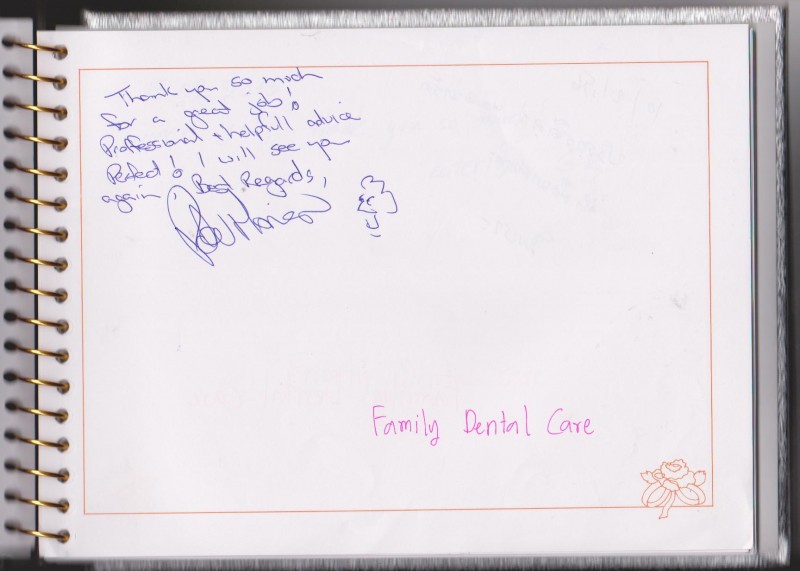 Thank you so much
for a great job!
Professional + helpfull advice
Perfect! I will see you
again, Best Regards,
Family Dental Care